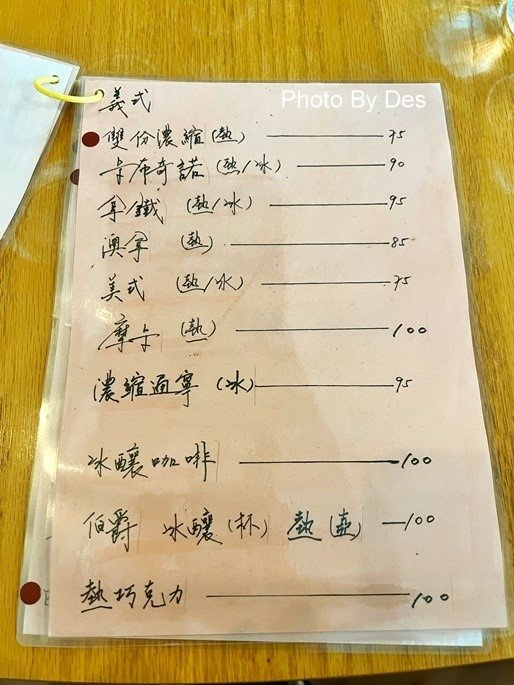 義式
Photo By Des
雙份濃縮(熱) 75
卡布奇諾(熱/冰) 90
拿鐵 (熱/冰) 95
澳拿 (熱) 85
美式 (熱/冰) 75
摩卡 (熱) 100
濃縮通寧 (冰) 95
冰釀咖啡 100
伯爵 冰釀(杯) 熱(壺) 100
熱巧克力 100